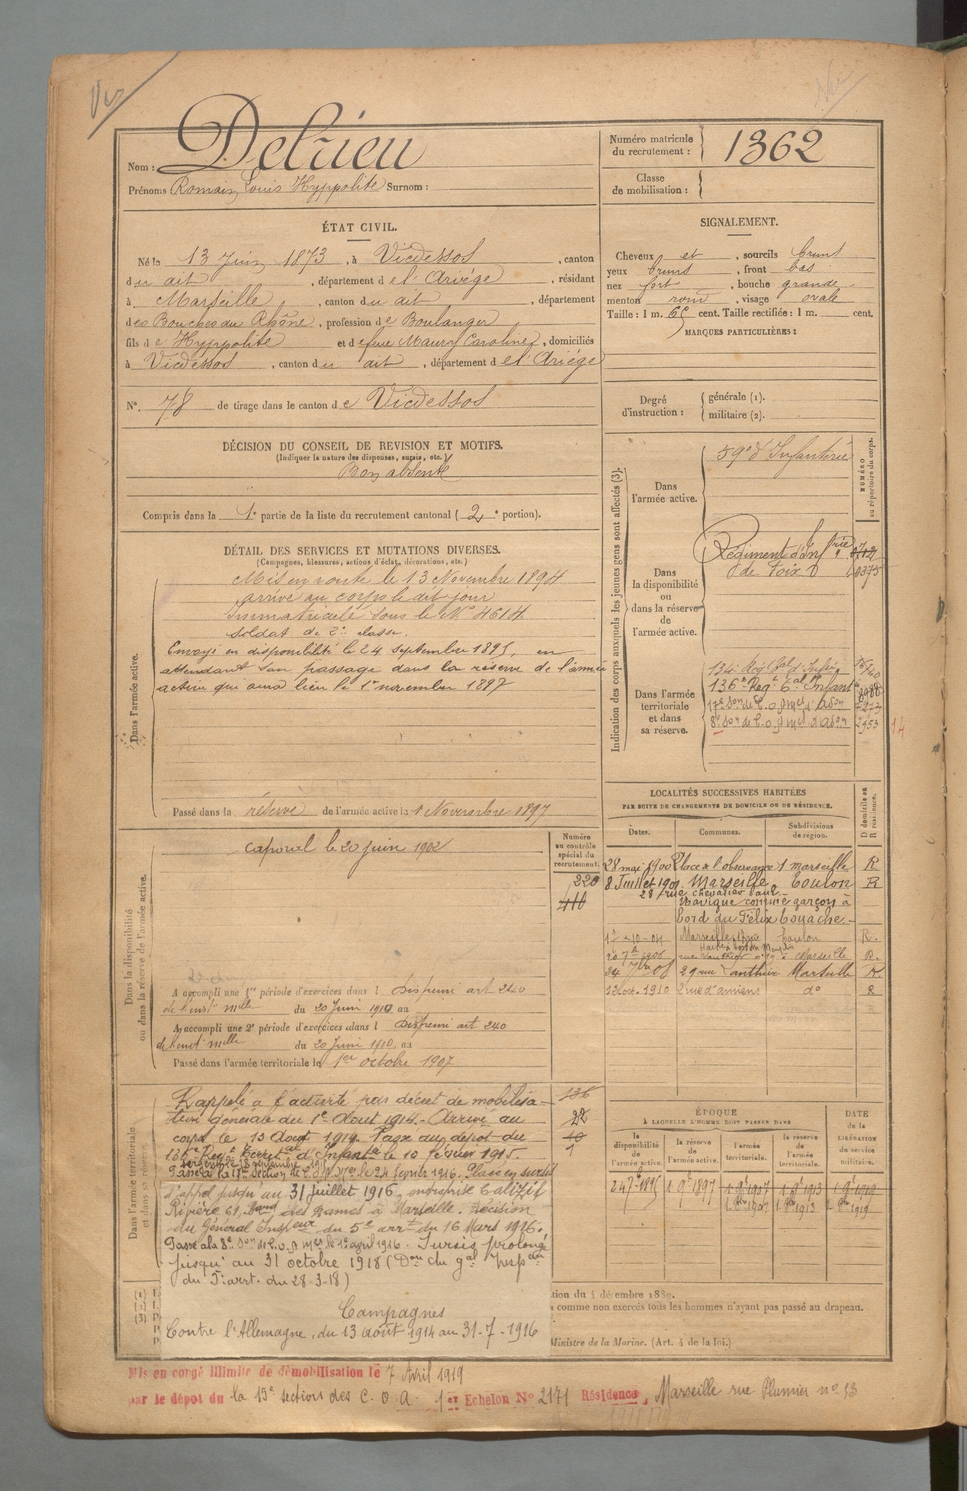 Vu
Nom : Delrieu
Prénoms Romain Louis Hyppolite Surnom :
Numéro matricule du recrutement : 1362
Classe de mobilisation :
ÉTAT CIVIL.
Né le 13 Juin 1873, à Vicdessos, canton
du dit, département de l'Ariége, résidant
à Marseille, canton du dit, département
des Bouches du Rhône, profession de Boulanger
fils de Hyppolite et de feue Maury Caroline, domiciliés
à Vicdessos, canton du dit, département de l'Ariége
N° 78 de tirage dans le canton de Vicdessos
SIGNALEMENT.
Cheveux et, sourcils bruns
yeux bruns, front bas
nez fort, bouche grande
menton rond, visage ovale
Taille : 1 m. 65 cent. Taille rectifiée : 1 m. cent.
MARQUES PARTICULIÈRES :
Degré d'instruction : générale (1).
militaire (2).
DÉCISION DU CONSEIL DE REVISION ET MOTIFS.
(Indiquer la nature des dispenses, sursis, etc.)
Bon absent
Compris dans la 1e partie de la liste du recrutement cantonal (2e portion).
DÉTAIL DES SERVICES ET MUTATIONS DIVERSES.
(Campagnes, blessures, actions d'éclat, décorations, etc.)
Dans l'armée active.
Mis en route le 13 Novembre 1894
arrivé au corps le dit jour
Immatriculé sous le N° 4614
soldat de 2e classe.
Envoyé en disponibilité le 24 septembre 1895, en
attendant son passage dans la réserve de l'armée
active qui aura lieu le 1er novembre 1897
Passé dans la réserve de l'armée active le 1 Novembre 1897
Indication des corps auxquels les jeunes gens sont affectés (3).
NUMÉRO au répertoire du corps.
Dans l'armée active.
59e d'Infanterie
Dans la disponibilité ou dans la réserve de l'armée active.
Régiment d'Infrie
de Foix
Dans l'armée territoriale et dans sa réserve.
134e Regt tal d'Infie
136e Regt tal Infant
17e Son de C.O.A.
8e Son de C.O.A. 2953
14
LOCALITÉS SUCCESSIVES HABITÉES
PAR SUITE DE CHANGEMENTS DE DOMICILE OU DE RÉSIDENCE.
D domicile ou R résidence.
Dates. Communes. Subdivisions de région.
28 mai 1900 Place de l'observance 1 marseille R
8 Juillet 1901 Marseille Toulon R
28 rue chevalier Paul
Navigue comme garçon à
bord du Félix Touache
Marseille Toulon R.
Marseille R.
29 rue Vanthier Marseille R
13 Oct. 1910 2 rue d'amiens do R
Dans la disponibilité ou dans la réserve de l'armée active.
Numéro au contrôle spécial du recrutement.
caporal le 20 juin 1902
220
410
A accompli une 1re période d'exercices dans l Dispensé art 240
de l'inst mlle du 20 Juin 1910 au
A accompli une 2e période d'exercices dans l Dispensé art 240
de l'inst mlle du 20 Juin 1910 au
Passé dans l'armée territoriale le 1er octobre 1907
Dans l'armée territoriale et dans sa réserve
Rappelé à l'activité par décret de mobilisa-
tion générale du 1er Aout 1914. Arrivé au
corps le 13 Aout 1914. Passé au dépot du
136e Regt Territal d'Infanta le 10 février 1915.
Passé à la 17e Section de C.O.A. Mre le 24 février 1916. Placé en sursis
d'appel jusqu'au 31 juillet 1916
Rivière 61, Bard des Dames à Marseille. Décision
du Général Inspeur du 5e arrt du 16 Mars 1916.
Passé à la 8e Son de C.O.A. le 1er avril 1916. Sursis prolongé
jusqu'au 31 octobre 1918 (Don du gal Inspeur
du 5e arrt. du 28-3-18)
Campagnes
Contre l'Allemagne, du 13 août 1914 au 31-7-1916
136
22
ÉPOQUE
À LAQUELLE L'HOMME DOIT PASSER DANS
DATE de la LIBÉRATION du service militaire.
la disponibilité de l'armée active. la réserve de l'armée active. l'armée territoriale. la réserve de l'armée territoriale.
24 7e 1895 1 9e 1897 1 9e 1907 1 9e 1913 1 9e 1919
1 8bre 1907 1 8bre 1913 1 8bre 1919
comme non exercés tous les hommes n'ayant pas passé au drapeau.
Ministre de la Marine. (Art. 4 de la loi.)
Mis en congé illimité de démobilisation le 7 Avril 1919
par le dépot du la 15e section des C.O.A. 1er Echelon N° 2171 Résidence, Marseille rue Plumier n° 13